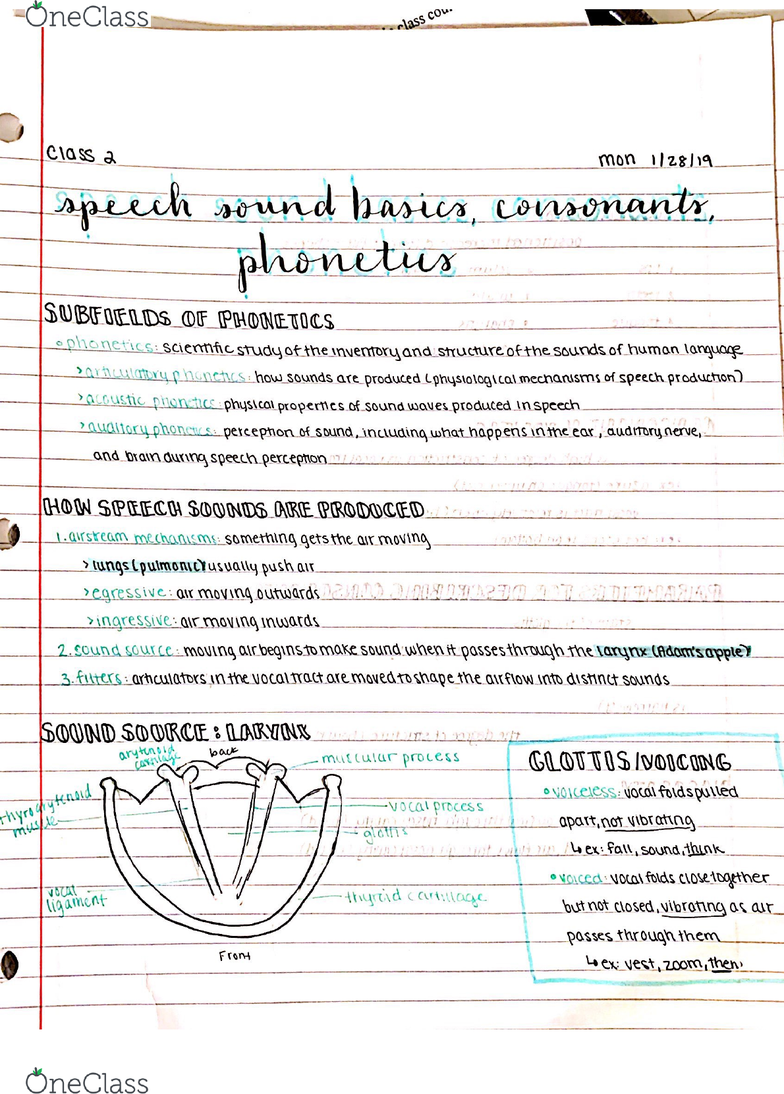 OneClass
class cou
Class 2
mon 1/28/19
speech sound basics, consonants,
phonetics
SUBFIELDS OF PHONETICS
phonetics: scientific study of the inventory and structure of the sounds of human language
>articulatory phonetics: how sounds are produced (physiological mechanisms of speech production)
>acoustic phonetics: physical properties of sound waves produced in speech
>auditory phonetics: perception of sound, including what happens in the ear, auditory nerve,
and brain during speech perception
HOW SPEECH SOUNDS ARE PRODUCED
1. airstream mechanisms: something gets the air moving
>lungs (pulmonic) usually push air
>egressive: air moving outwards
>ingressive: air moving inwards
2. sound source: moving air begins to make sound when it passes through the larynx (Adam's apple)
3. filters: articulators in the vocal tract are moved to shape the airflow into distinct sounds
SOUND SOURCE: LARYNX
arytenoid
cartilage
back
muscular process
thyroarytenoid
muscle
vocal process
glottis
vocal
ligament
thyroid cartillage
Front
GLOTTIS/VOICING
voiceless: vocal folds pulled
apart, not vibrating
↳ex: fall, sound, think
voiced: vocal folds close together
but not closed, vibrating as air
passes through them
↳ex: vest, zoom, then
OneClass